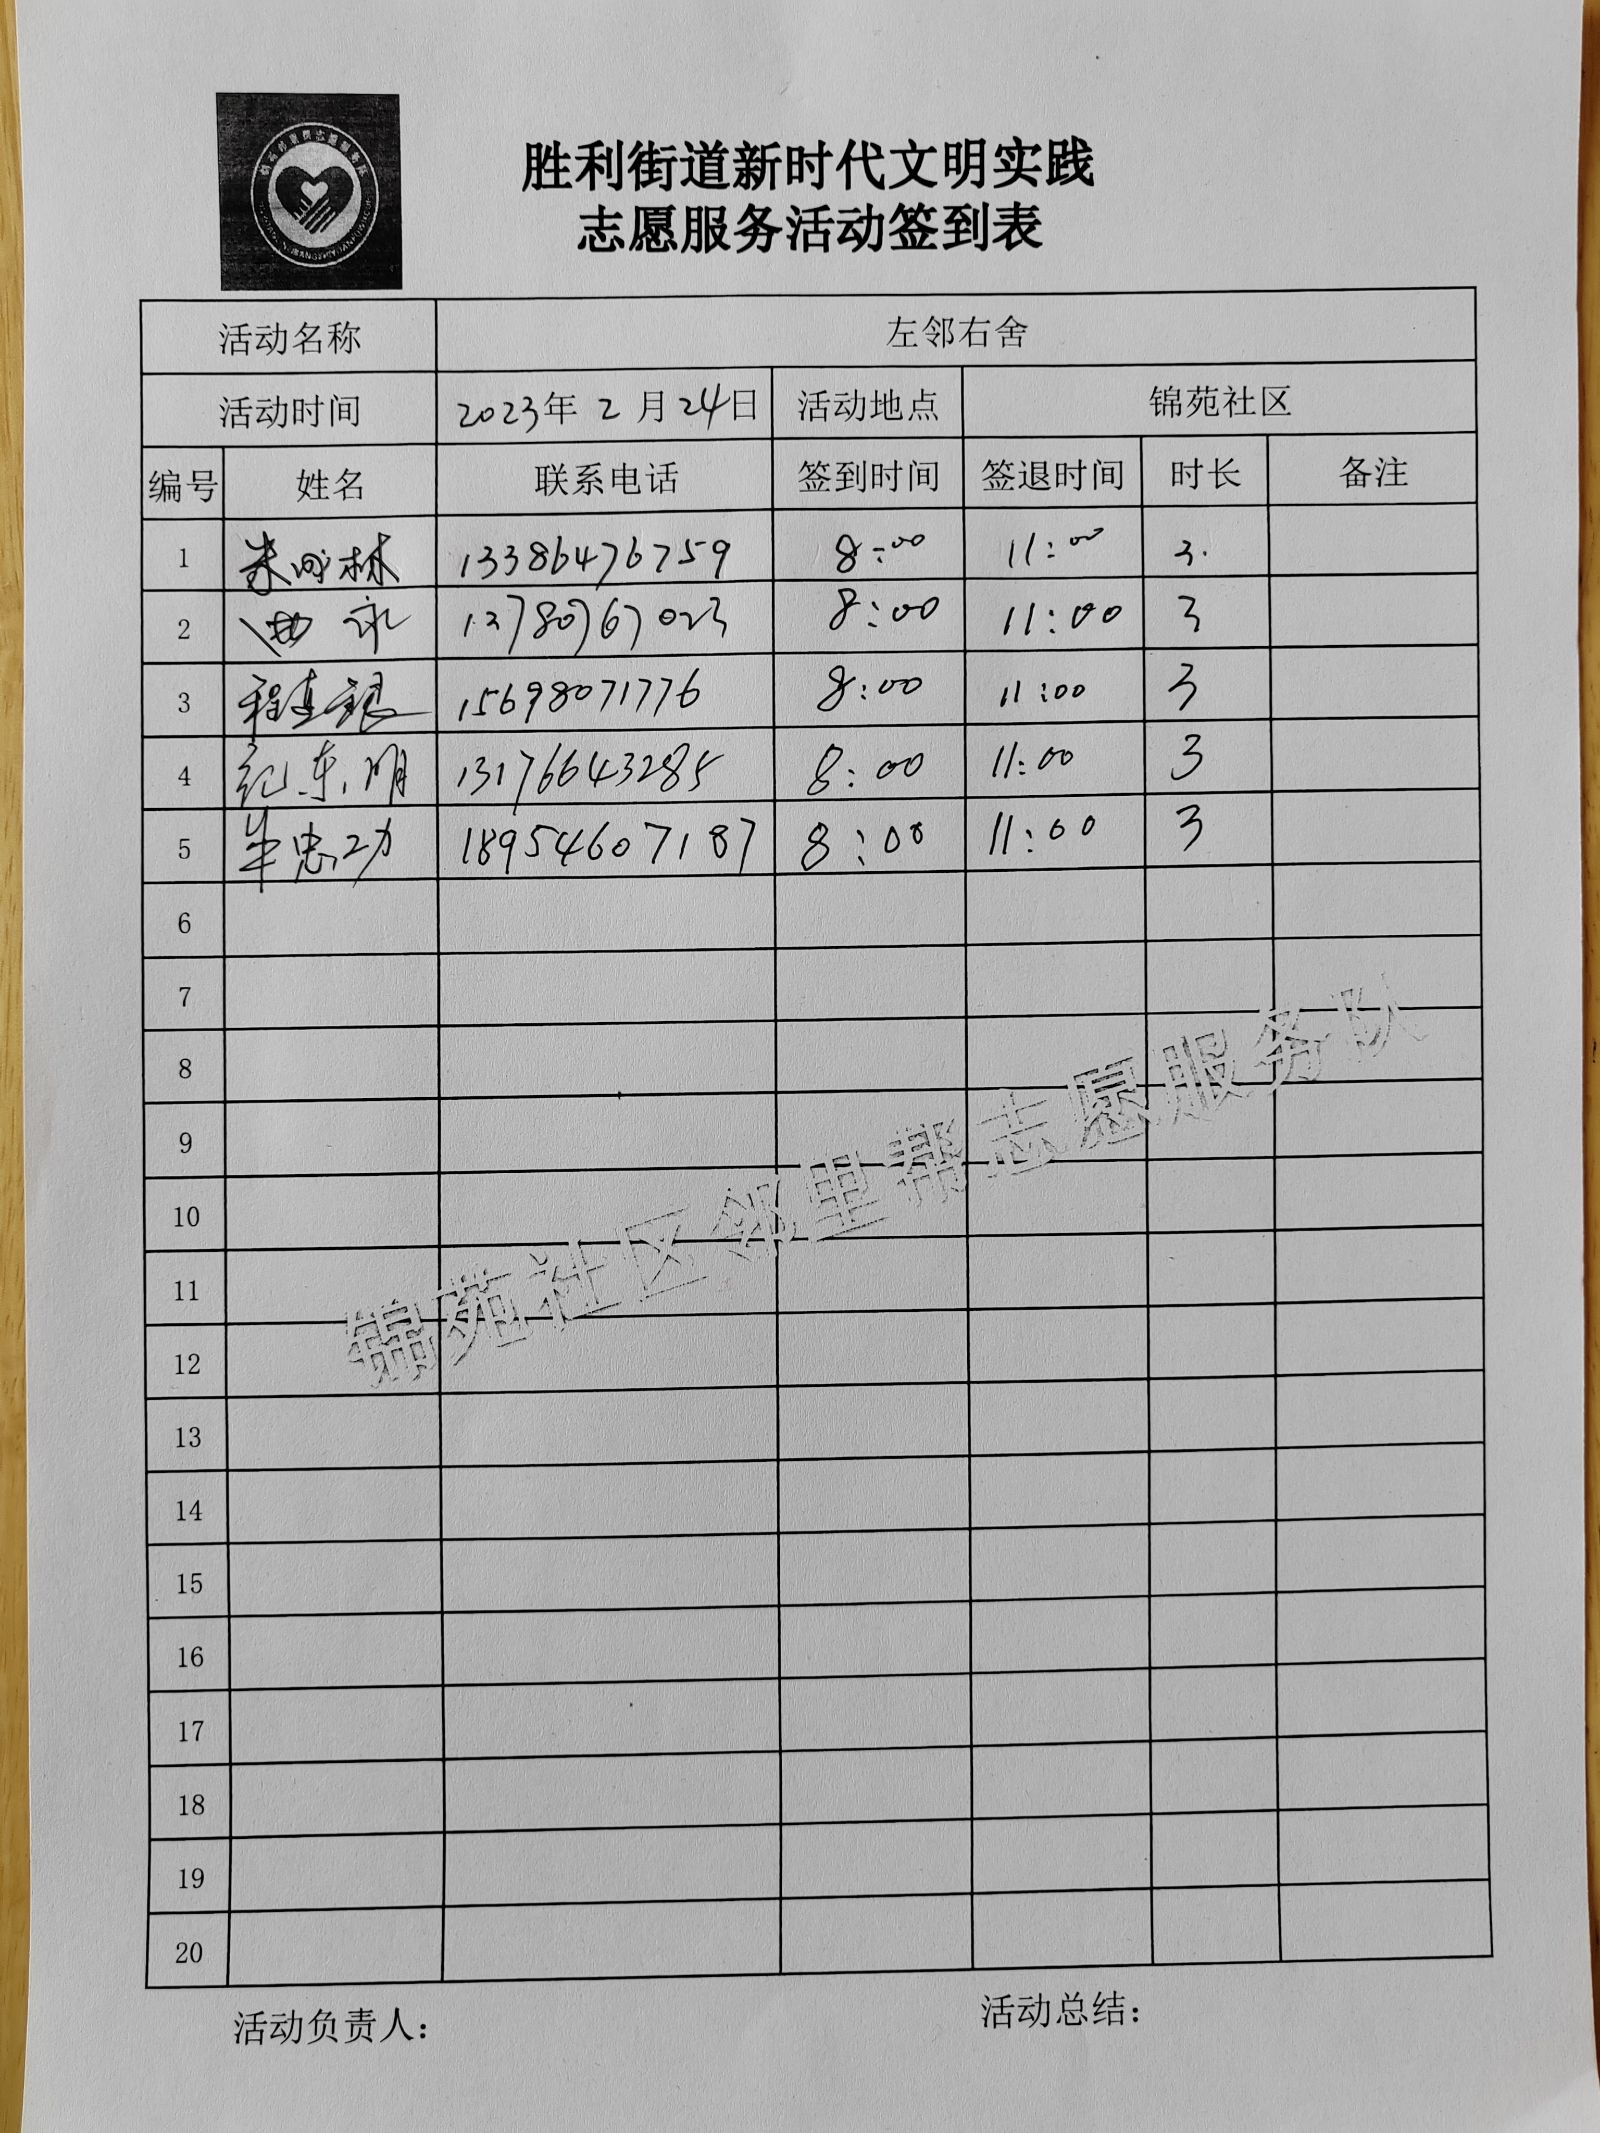 胜利街道新时代文明实践
志愿服务活动签到表
活动名称 左邻右舍
活动时间 2023年 2 月 24日 活动地点 锦苑社区
编号 姓名 联系电话 签到时间 签退时间 时长 备注
1 林 13386476759 8:00 11:00 3.
2 曲 永 13780767023 8:00 11:00 3
3 程连银 15698071776 8:00 11:00 3
4 纪东明 13176643285 8:00 11:00 3
5 牟忠功 18954607187 8:00 11:00 3
6
7
8
9
10
11
12
13
14
15
16
17
18
19
20
锦苑社区邻里帮志愿服务队
活动负责人: 活动总结: